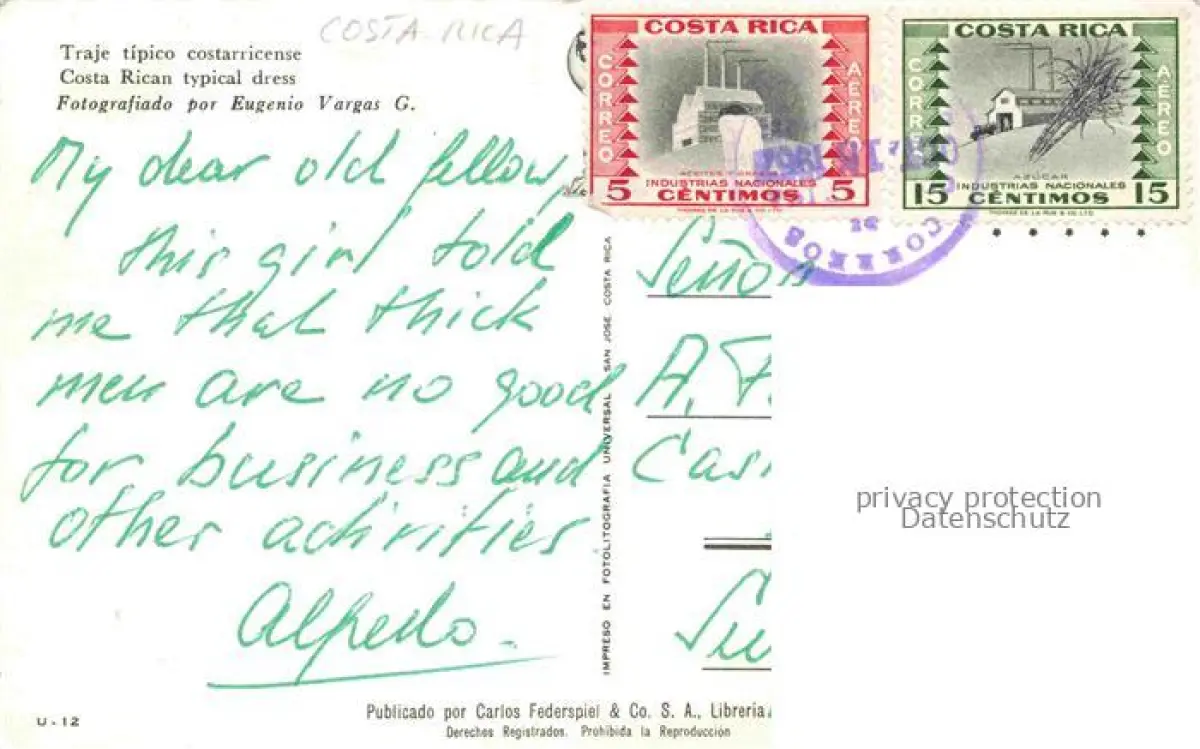 COSTA RICA
Traje típico costarricense
Costa Rican typical dress
Fotografiado por Eugenio Vargas G.
My dear old fellow,
this girl told
me that thick
men are no good
for business and
other activities
Alfredo
U-12
COSTA RICA
CORREO
AEREO
5
INDUSTRIAS NACIONALES
5
CENTIMOS
THOMAS DE LA RUE & CO. LTD.
COSTA RICA
CORREO
AEREO
AZUCAR
15
INDUSTRIAS NACIONALES
15
CENTIMOS
THOMAS DE LA RUE & CO. LTD.
CORREOS
DE
IMPRESO EN FOTOLITOGRAFIA UNIVERSAL SAN JOSE, COSTA RICA
Señor
A. F.
Casi
privacy protection
Datenschutz
Publicado por Carlos Federspiel & Co. S. A., Libreria
Derechos Registrados. Prohibida la Reproducción